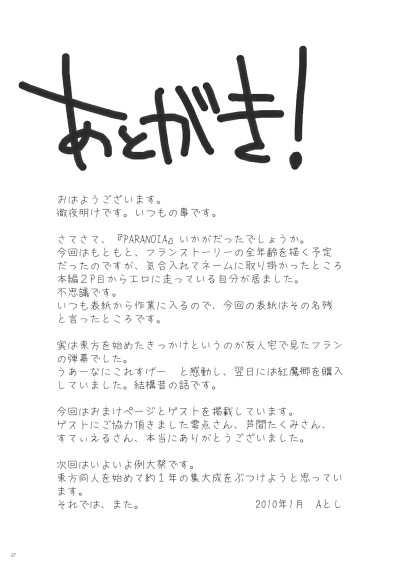 あとがき!
おはようございます。
徹夜明けです。いつもの事です。
さてさて、『PARANOIA』いかがだったでしょうか。
今回はもともと、フランストーリーの全年齢を描く予定
だったのですが、気合入れてネームに取り掛かったところ
本編２Ｐ目からエロに走っている自分が居ました。
不思議です。
いつも表紙から作業に入るので、今回の表紙はその名残
と言ったところです。
実は東方を始めたきっかけというのが友人宅で見たフラン
の弾幕でした。
うあーなにこれすげー　と感動し、翌日には紅魔郷を購入
していました。結構昔の話です。
今回はおまけページとゲストを掲載しています。
ゲストにご協力頂きました零点さん、芦間たくみさん、
すてぃえるさん、本当にありがとうございました。
次回はいよいよ例大祭です。
東方同人を始めて約１年の集大成をぶつけようと思ってい
ます。
それでは、また。　2010年1月　Aとし
27